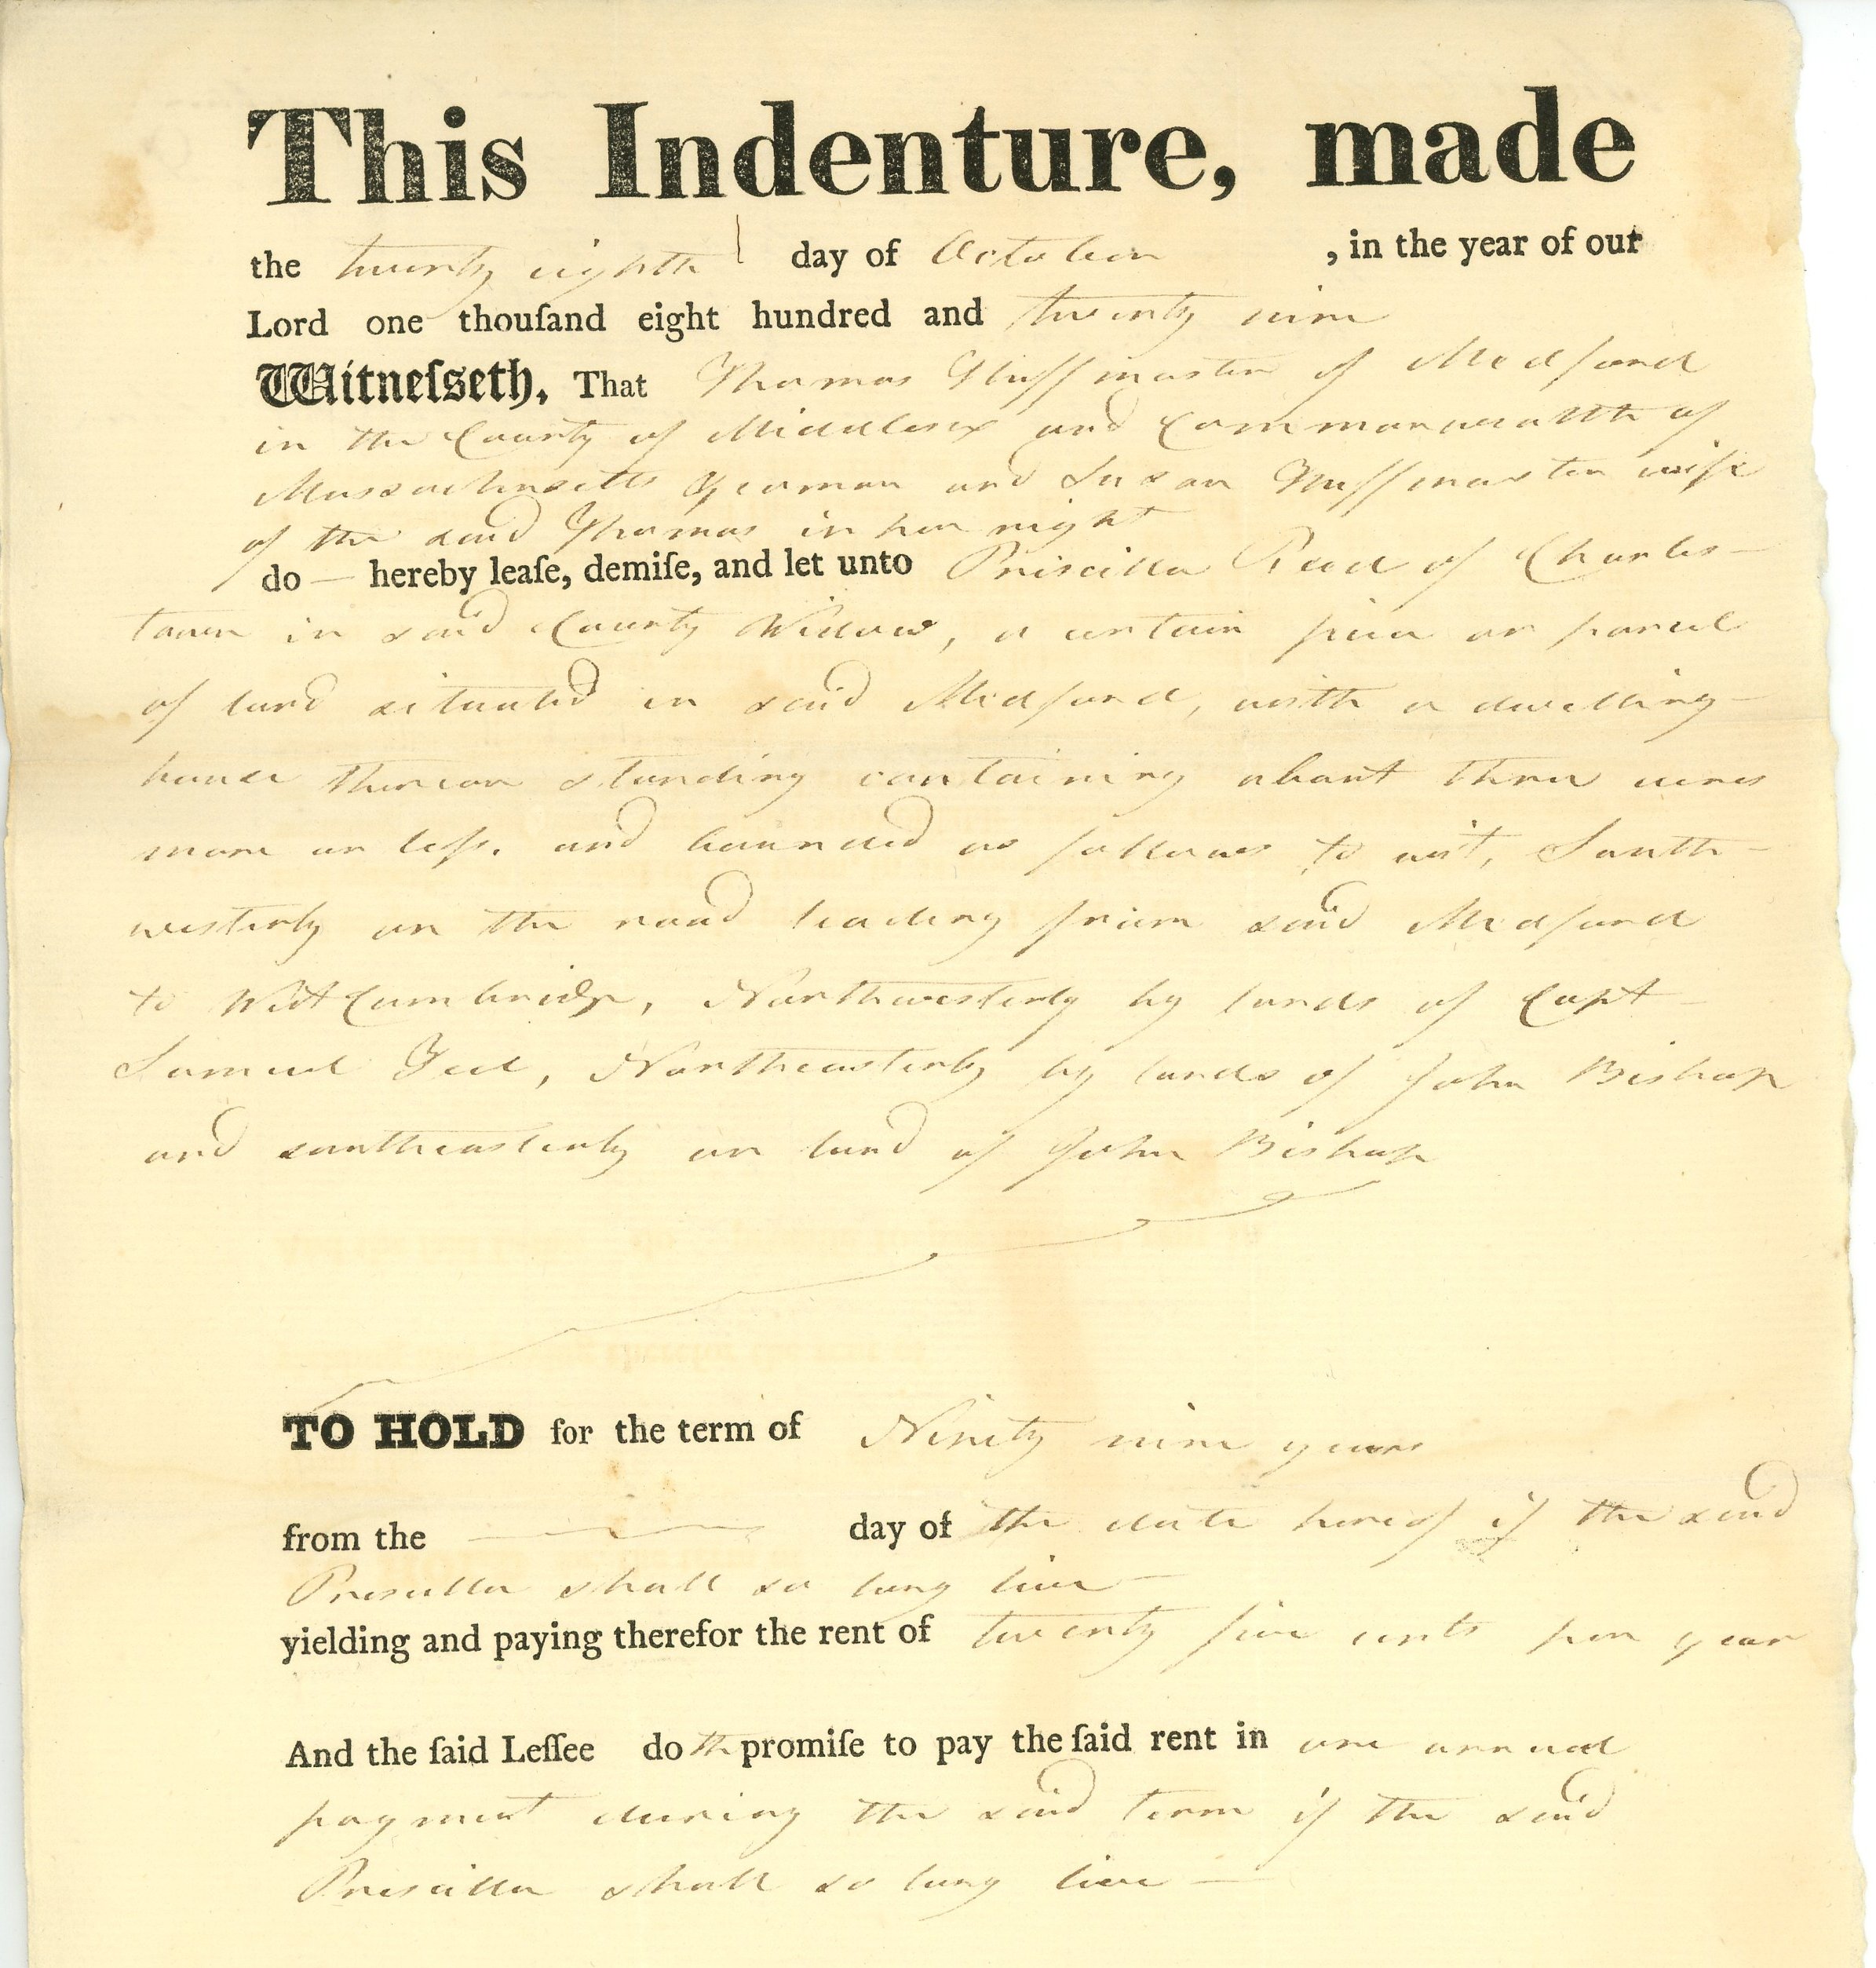 This Indenture, made
the twenty eighth day of October , in the year of our
Lord one thouſand eight hundred and twenty nine
Witneſseth, That Thomas Huffmaster of Medford
in the County of Middlesex and Commonwealth of
Massachusetts Yeoman and Susan Huffmaster wife
of the said Thomas in her right
do — hereby leaſe, demiſe, and let unto Priscilla Reed of Charles-
town in said County Widow, a certain piece or parcel
of land situated in said Medford, with a dwelling-
house thereon standing containing about three acres
more or leſs. and bounded as follows to wit, South-
westerly on the road leading from said Medford
to West Cambridge, Northwesterly by lands of Capt
Samuel Teel, Northeasterly by lands of John Bishop
and southeasterly on land of John Bishop
TO HOLD for the term of Ninety nine years
from the — day of the date hereof if the said
Priscilla shall so long live —
yielding and paying therefor the rent of twenty five cents per year
And the ſaid Leſſee doth promiſe to pay the ſaid rent in one annual
payment during the said term if the said
Priscilla shall so long live —